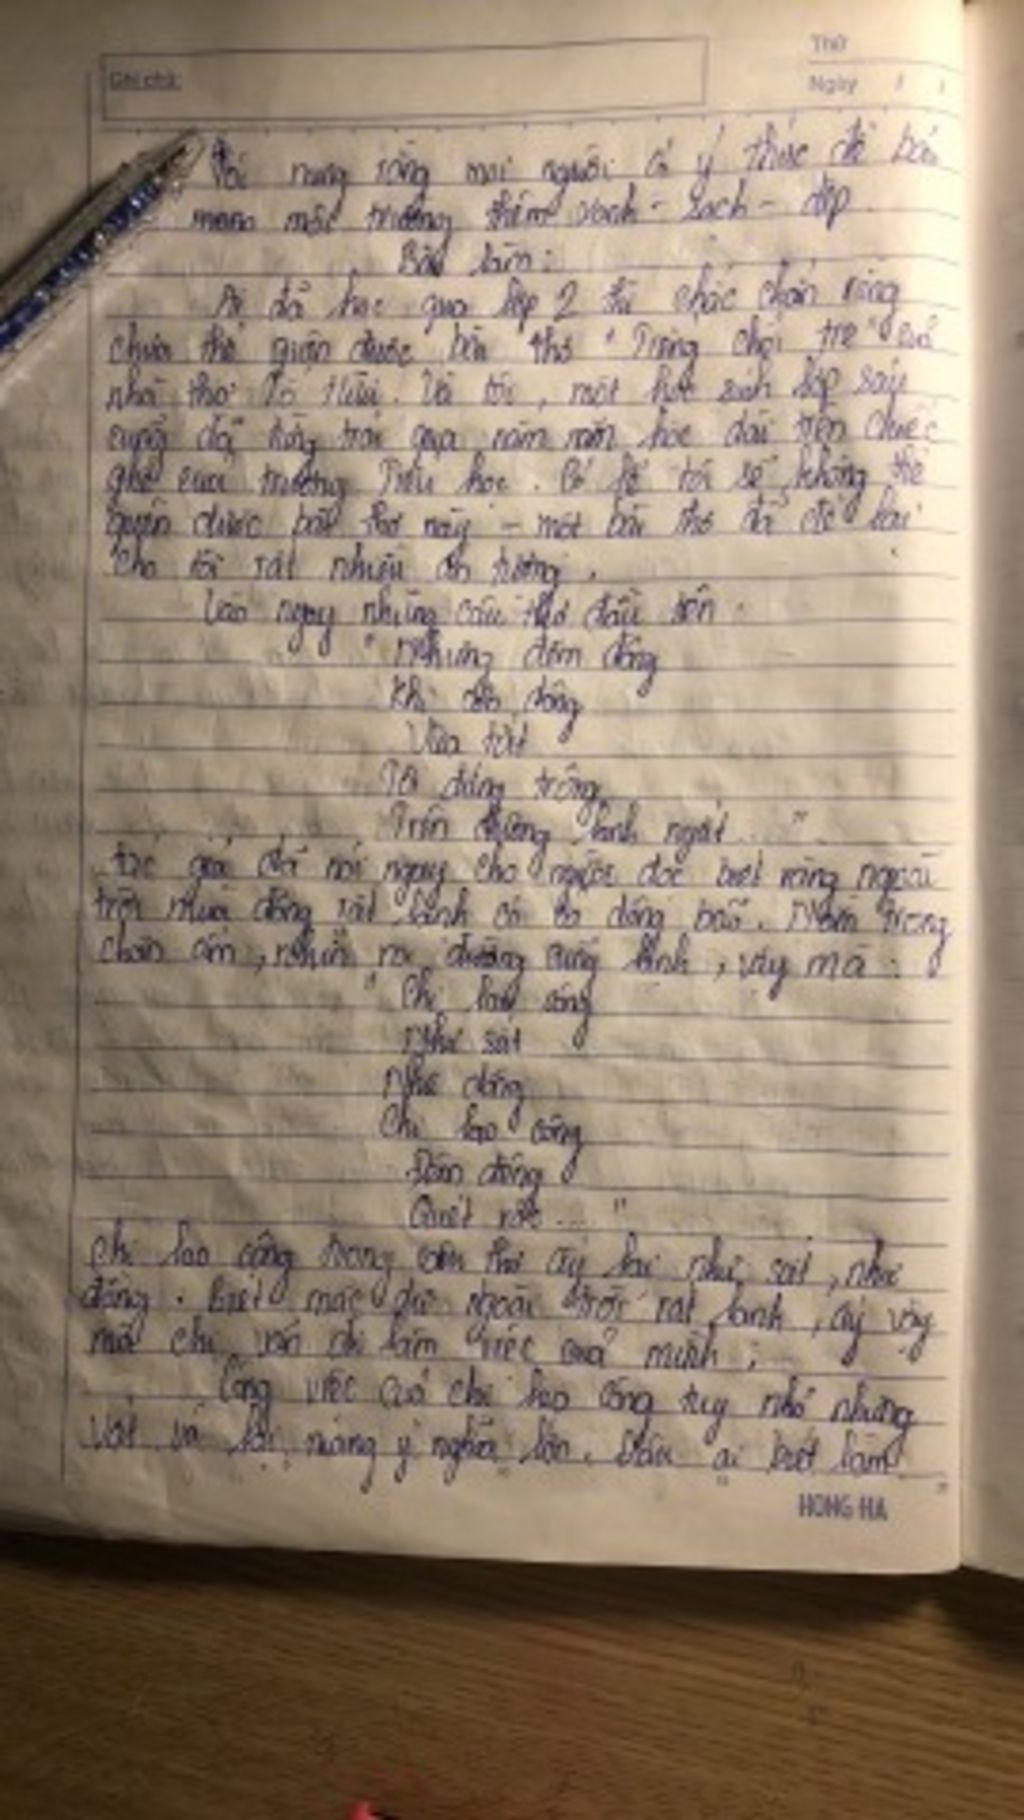 Thứ
Ghi chú:
Ngày / /
Tôi mong rằng mọi người có ý thức để
môi trường thêm xanh - sạch - đẹp.
Bài làm:
Ai đã học qua lớp 2 thì chắc chắn rằng
chưa thể quên được bài thơ "Tiếng chổi tre" của
nhà thơ Tố Hữu. Và tôi, một học sinh lớp sáu
cũng đã từng trải qua năm năm học dài trên chiếc
ghế của trường Tiểu học. Có lẽ tôi sẽ không thể
quên được bài thơ này - một bài thơ đã để lại
cho tôi rất nhiều ấn tượng.
Vào ngay những câu thơ đầu tiên:
" Những đêm đông
Khi cơn dông
Vừa tắt
Tôi đứng trông
Trên đường lạnh ngắt ... "
tác giả đã nói ngay cho người đọc biết rằng ngoài
trời mùa đông rất lạnh có to dông bão. Nằm trong
chăn ấm, nhìn ra đường cũng lạnh, vậy mà:
" Chị lao công
Như sắt
Như đồng
Chị lao công
Đêm đông
Quét rác ... "
chị lao công trong câu thơ ấy lại như sắt, như
đồng. Biết mặc dù ngoài trời rất lạnh, ấy vậy
mà chị vẫn đi làm việc của mình.
Công việc của chị lao công tuy nhỏ nhưng
vất vả lại mang ý nghĩa lớn. Đâu ai biết làm
HONG HA